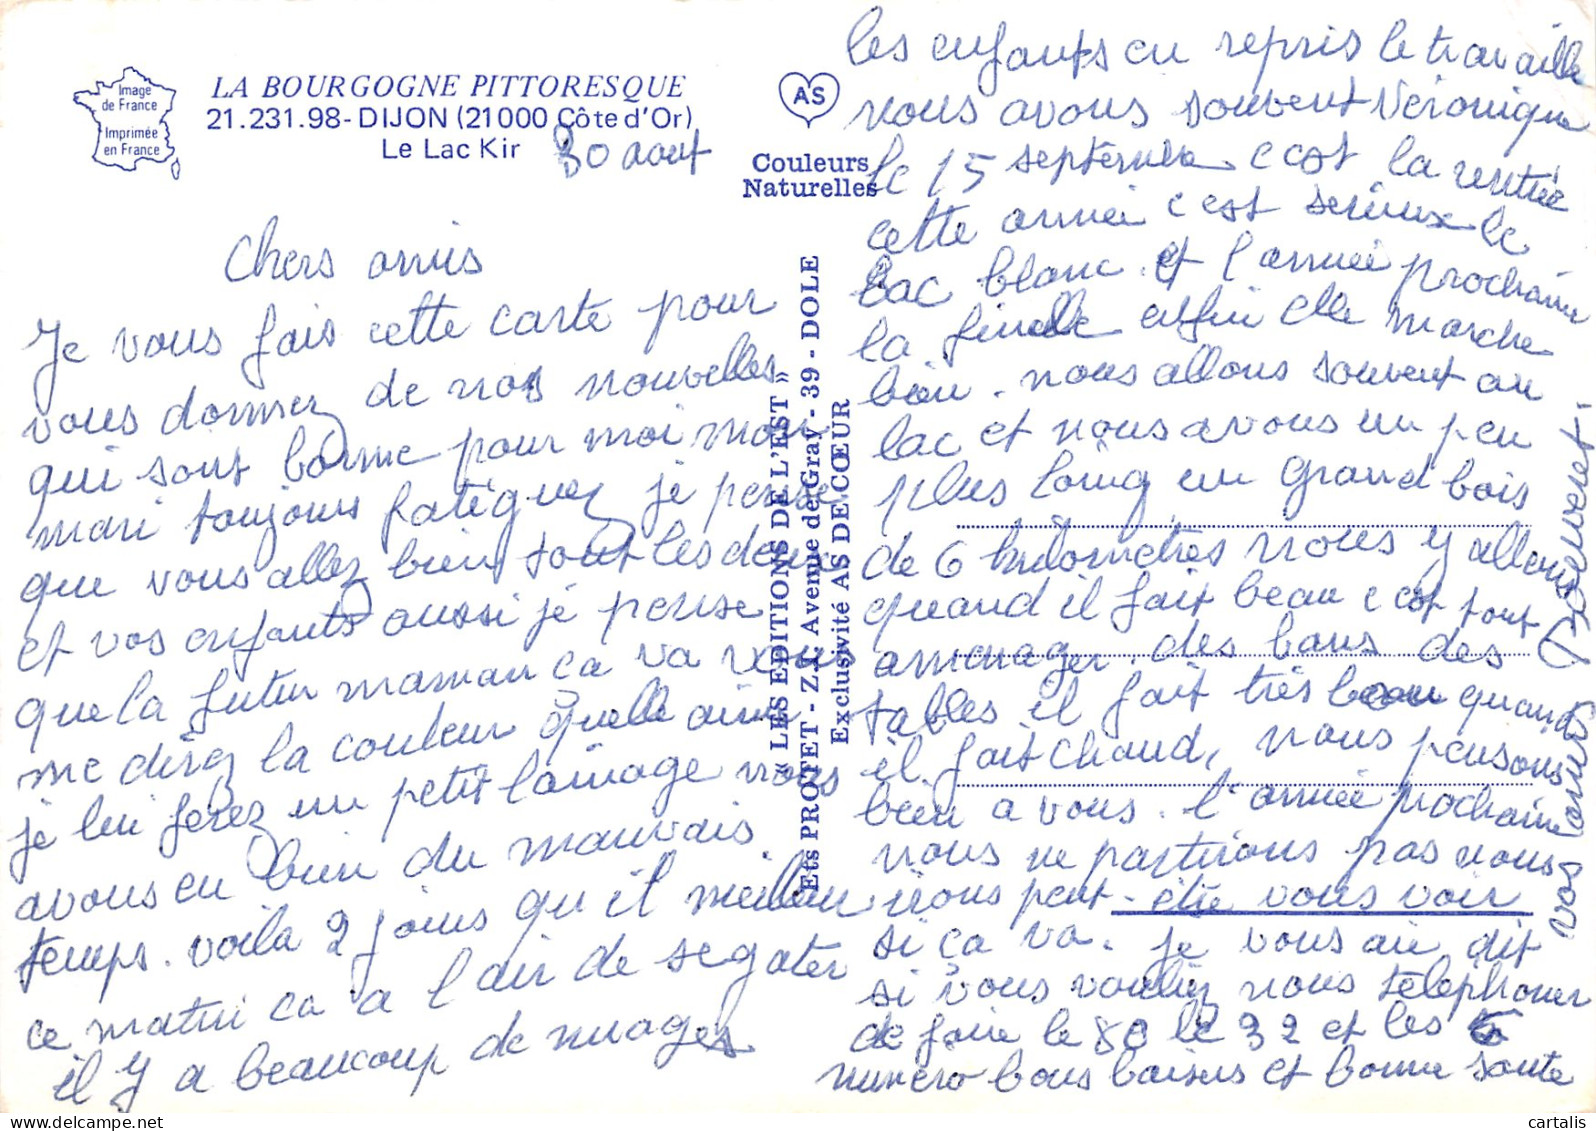 Image
de France
Imprimée
en France
LA BOURGOGNE PITTORESQUE
21.231.98-DIJON (21000 Côte d'Or)
Le Lac Kir
30 aout
AS
Couleurs
Naturelles
« LES EDITIONS DE L'EST »
Ets PROTET - Z.I. Avenue de Gray - 39 - DOLE
Exclusivité AS DE CŒUR
Chers amis
Je vous fais cette carte pour
vous donnez de nos nouvelles
qui sont bonne pour moi mon
mari toujours fatiguez je pense
que vous allez bien tout les deux
et vos enfants aussi je pense
que la futur maman ca va vous
me direz la couleur quelle aime
je lui ferez un petit lainage nous
avons eu bien du mauvais
temps. voila 2 jours qu il meilleur
ce matin ca a l air de se gater
il y a beaucoup de nuages
les enfants en repris le travaille
nous avons souvent Veronique
le 15 septembre c est la rentrée
cette année c est serieux le
bac blanc et l année prochaine
la finale enfin elle marche
bien. nous allons souvent au
lac et nous avons un peu
plus loing un grand bois
de 6 kilometres nous y allons
quand il fait beau c est tout
amenager des bans des
tables il fait très beau quand
il fait chaud, nous pensons
bien a vous. l'année prochaine
nous ne partirons pas nous
irons peut-etre vous voir
si ca va. je vous ai dit
si vous vouliez nous telephoner
de faire le 80 le 32 et les 6
numéro bons baisers et bonne sante
vos amis